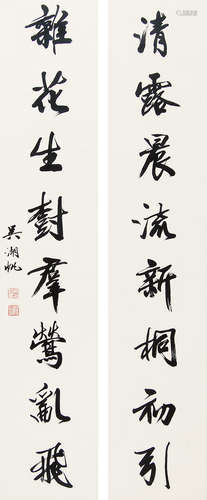 清露晨流新桐初引
雜花生樹羣鶯亂飛
吳湖帆